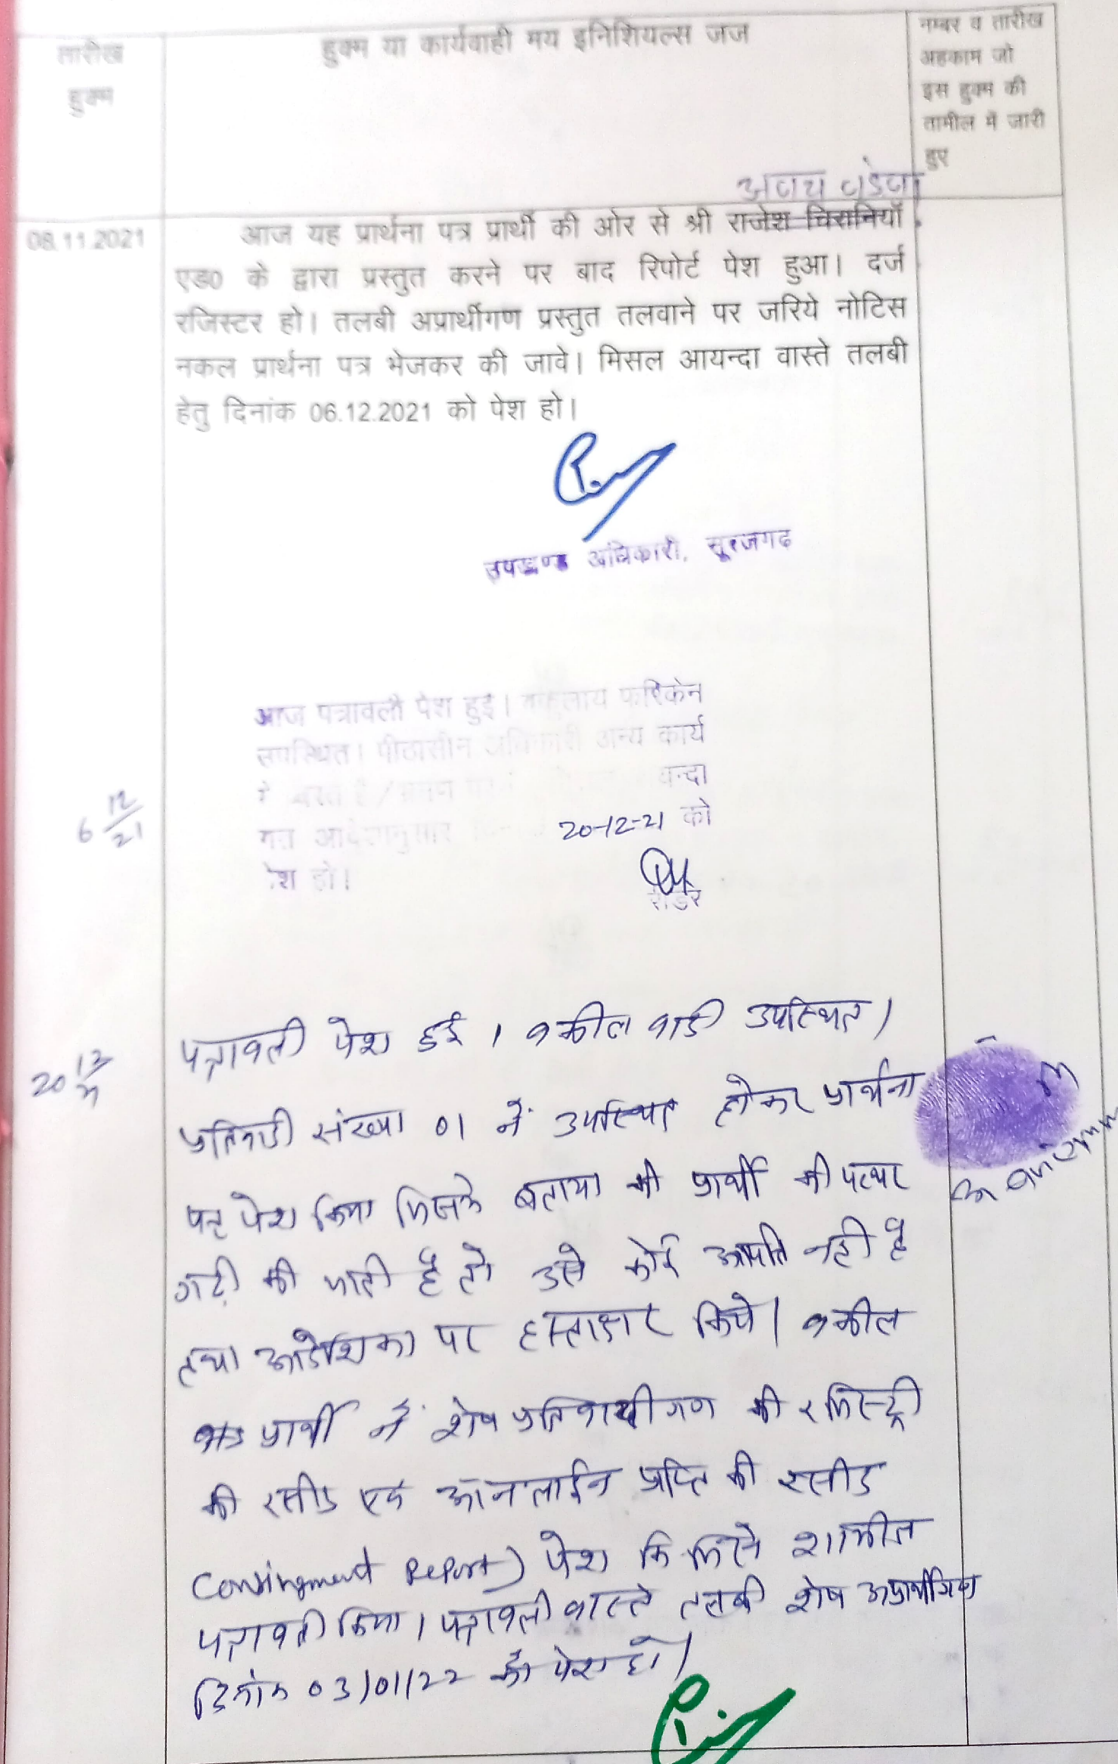 तारीख
हुक्म
हुक्म या कार्यवाही मय इनिशियल्स जज
नम्बर व तारीख
अहकाम जो
इस हुक्म की
तामील में जारी
हुए
08.11.2021
आज यह प्रार्थना पत्र प्रार्थी की ओर से श्री राजेश चिरानियाँ
एड0 के द्वारा प्रस्तुत करने पर बाद रिपोर्ट पेश हुआ। दर्ज
रजिस्टर हो। तलबी अप्रार्थीगण प्रस्तुत तलवाने पर जरिये नोटिस
नकल प्रार्थना पत्र भेजकर की जावे। मिसल आयन्दा वास्ते तलबी
हेतु दिनांक 06.12.2021 को पेश हो।
उपखण्ड अधिकारी, सूरजगढ
आज पत्रावली पेश हुई। फरिकेन
उपस्थित। पीठासीन अधिकारी अन्य कार्य
6 12/21
20-12-21 को
पेश हो।
रीडर
20 12/21
पत्रावली पेश हुई। वकील वादी उपस्थित।
प्रतिवादी संख्या 01 ने उपस्थित होकर प्रार्थना
पत्र पेश किया जिसमें बताया की प्रार्थी की पत्थर
गढी की जाती है तो उसे कोई आपति नही है
तथा आदेशिका पर हस्ताक्षर किये। वकील
प्रार्थी ने शेष प्रतिवादीगण की रजिस्ट्री
की रसीद एवं ऑनलाईन प्राप्ति की रसीद
Consingment Report) पेश कि जिसे शामील
पत्रावली किया। पत्रावली वास्ते तलबी शेष अप्रार्थीगण
दिनांक 03/01/22 को पेश हो।